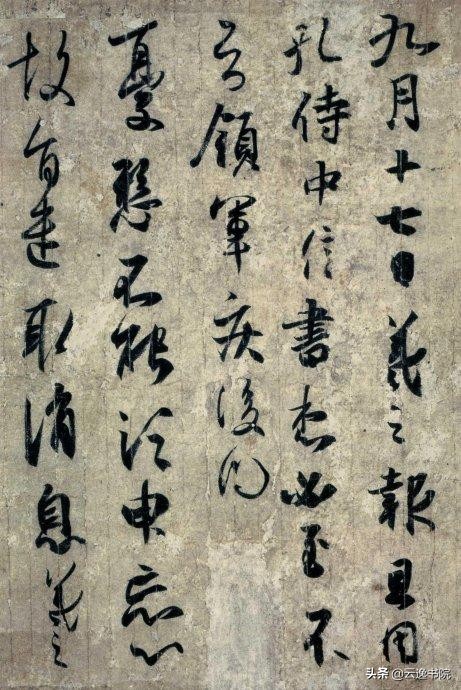 九月十七日羲之報且因
孔侍中信書想必至不
知領軍疾後問
憂懸不能須臾忘心
故旨遣取消息羲之
头条 @云逸书院